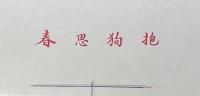 春思狗抱